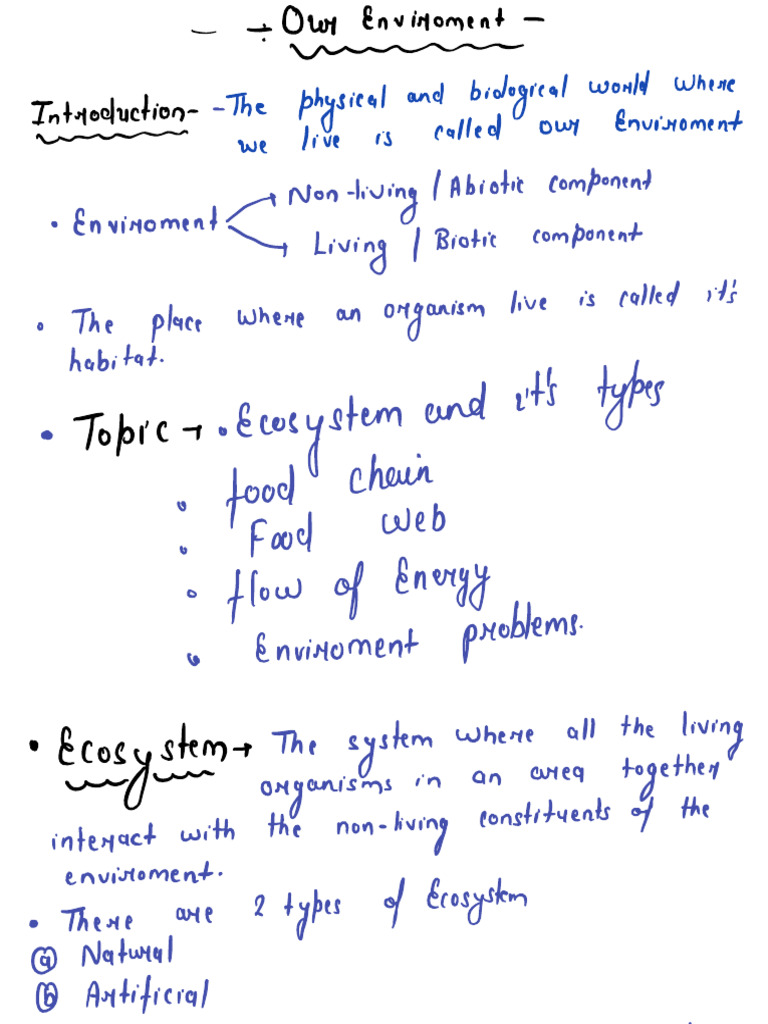 - ÷ Our Enviroment -
Introduction- - The physical and biological world where
we live is called our Enviroment
• Enviroment → Non-living / Abiotic component
→ Living / Biotic component
• The place where an organism live is called it's
habitat.
• Topic → • Ecosystem and it's types
• food chain
• Food web
• flow of Energy
• Enviroment problems.
• Ecosystem → The system where all the living
organisms in an area together
interact with the non-living constituents of the
enviroment.
• There are 2 types of Ecosystem
(a) Natural
(b) Artificial